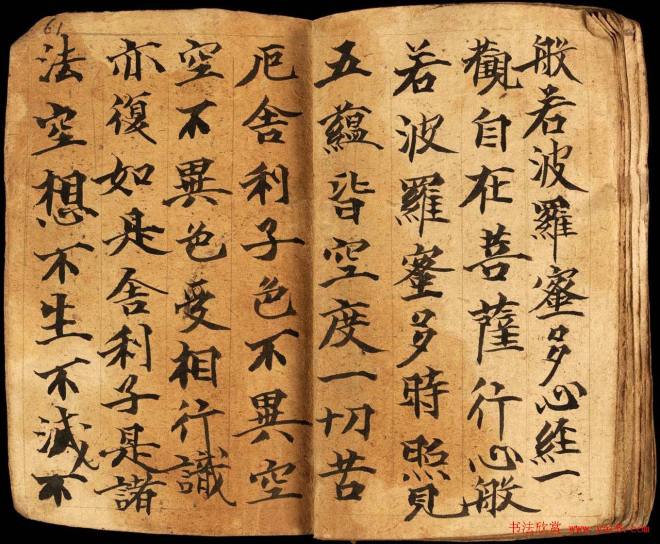 61
般若波羅蜜多心経一
觀自在菩薩行心般
若波羅蜜多時照見
五蘊皆空度一切苦
厄舍利子色不異空
空不異色受相行識
亦復如是舍利子是諸
法空想不生不滅不
书法欣赏